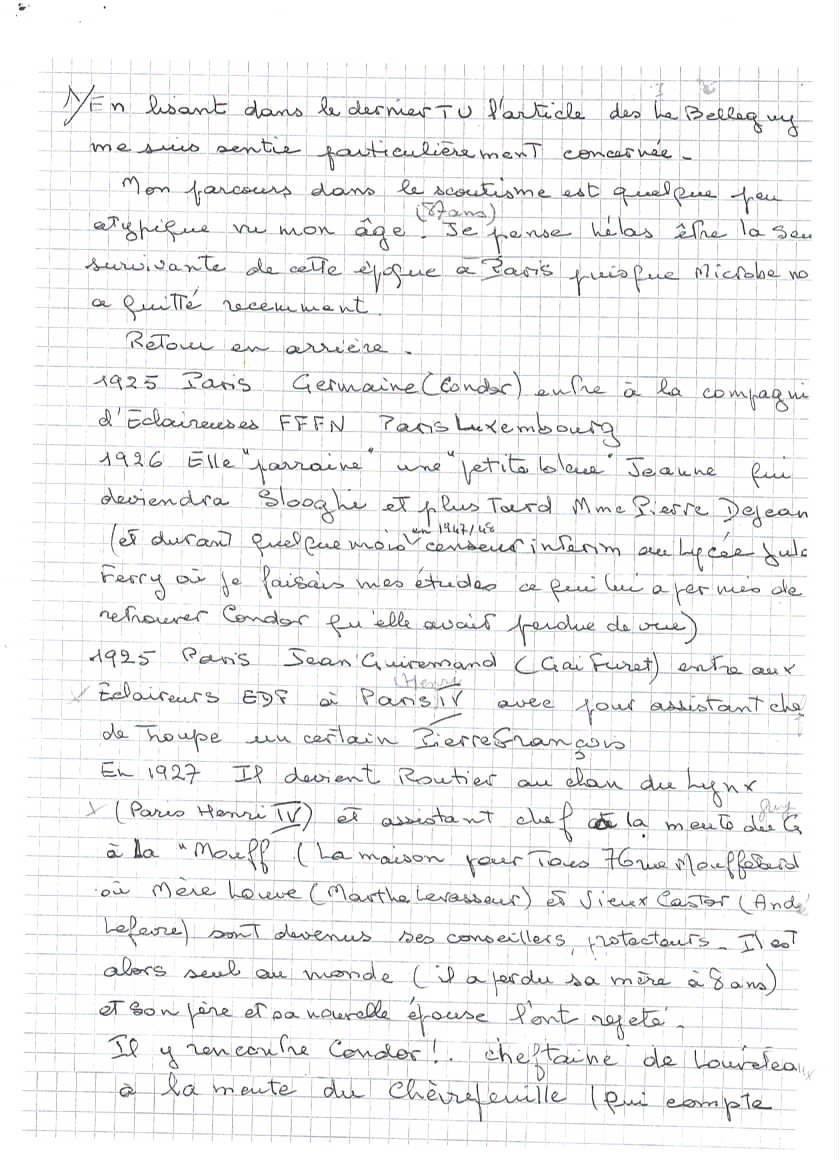 1/ En lisant dans le dernier TU l'article des Le Belleguy
me suis sentie particulièrement concernée -
Mon parcours dans le scoutisme est quelque peu
(87ans)
atypique vu mon âge. Je pense hélas être la seu
survivante de cette époque à Paris puisque Microbe no
a quitté recemment.
Retour en arrière.
1925 Paris Germaine (Condor) entre à la compagni
d'Eclaireuses FFFN Paris Luxembourg
1926 Elle "parraine" une "petite bleue" Jeanne qui
deviendra Slooghi et plus Tard Mme Pierre Dejean
en 1947/48
(et durant quelque mois censeur interim au Lycée Jule
Ferry où je faisais mes études ce qui lui a permis de
retrouver Condor qu'elle avait perdue de vue)
1925 Paris Jean Guiremand (Gai Furet) entre aux
(Henri
Eclaireurs EDF à Paris IV avec pour assistant che
de Troupe un certain Pierre François
En 1927 Il devient Routier au clan du Lynx
guy
(Paris Henri IV) et assistant chef à la meute du G
à la "Mouff (La maison pour Tous 76 rue Mouffetard
où Mère Louve (Marthe Levasseur) et Vieux Castor (Andr
Lefevre) sont devenus ses conseillers, protecteurs - Il est
alors seul au monde (il a perdu sa mère à 8 ans)
et son père et sa nouvelle épouse l'ont rejeté.
Il y rencontre Condor!. cheftaine de Louvetea
à la meute du Chèvrefeuille (qui compte